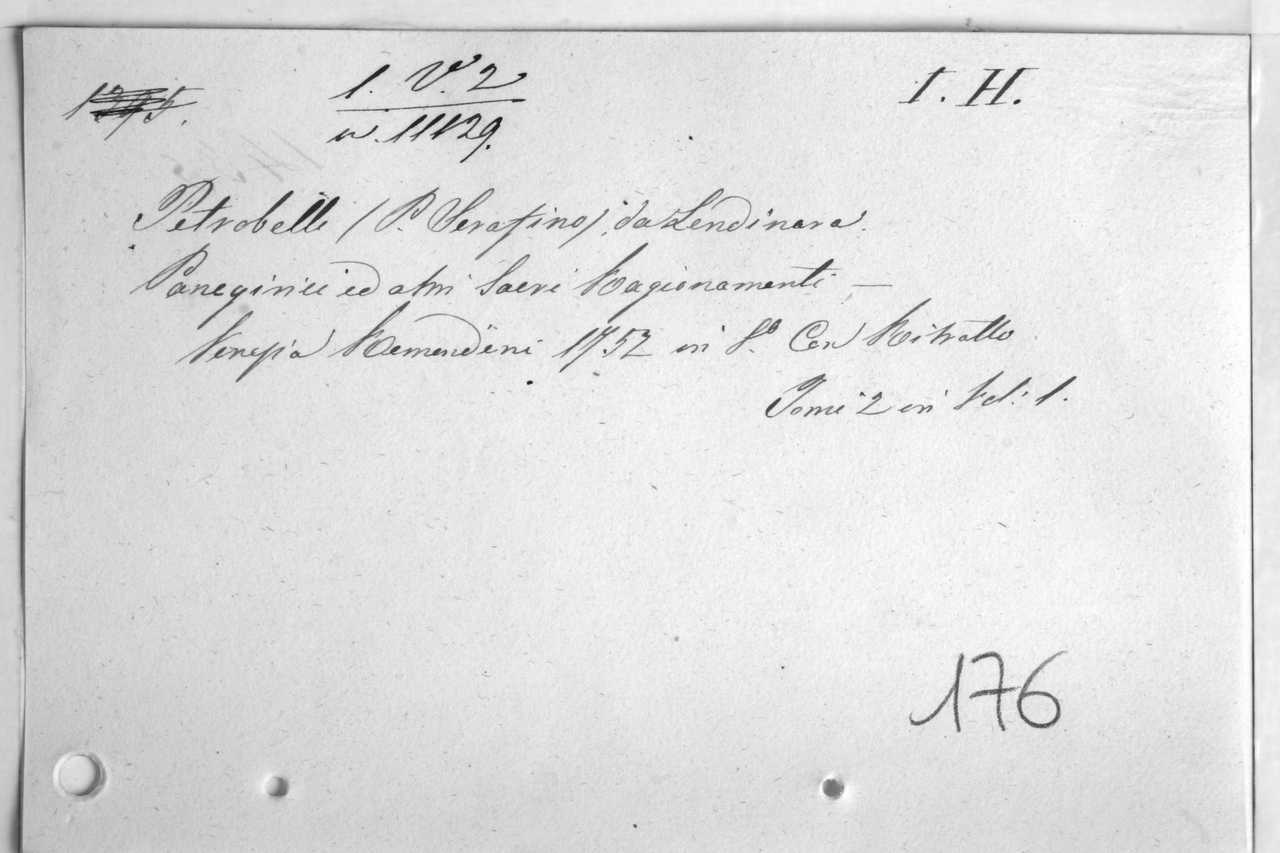 1. V. 2
I. H.
n. 11129.
Petrobelli (P. Serafino) da Lendinara.
Panegirici ed altri Sacri Ragionamenti —
Venezia Remondini 1752 in 8.º Con Ritratto
Tomi 2 in Vol: 1.
176